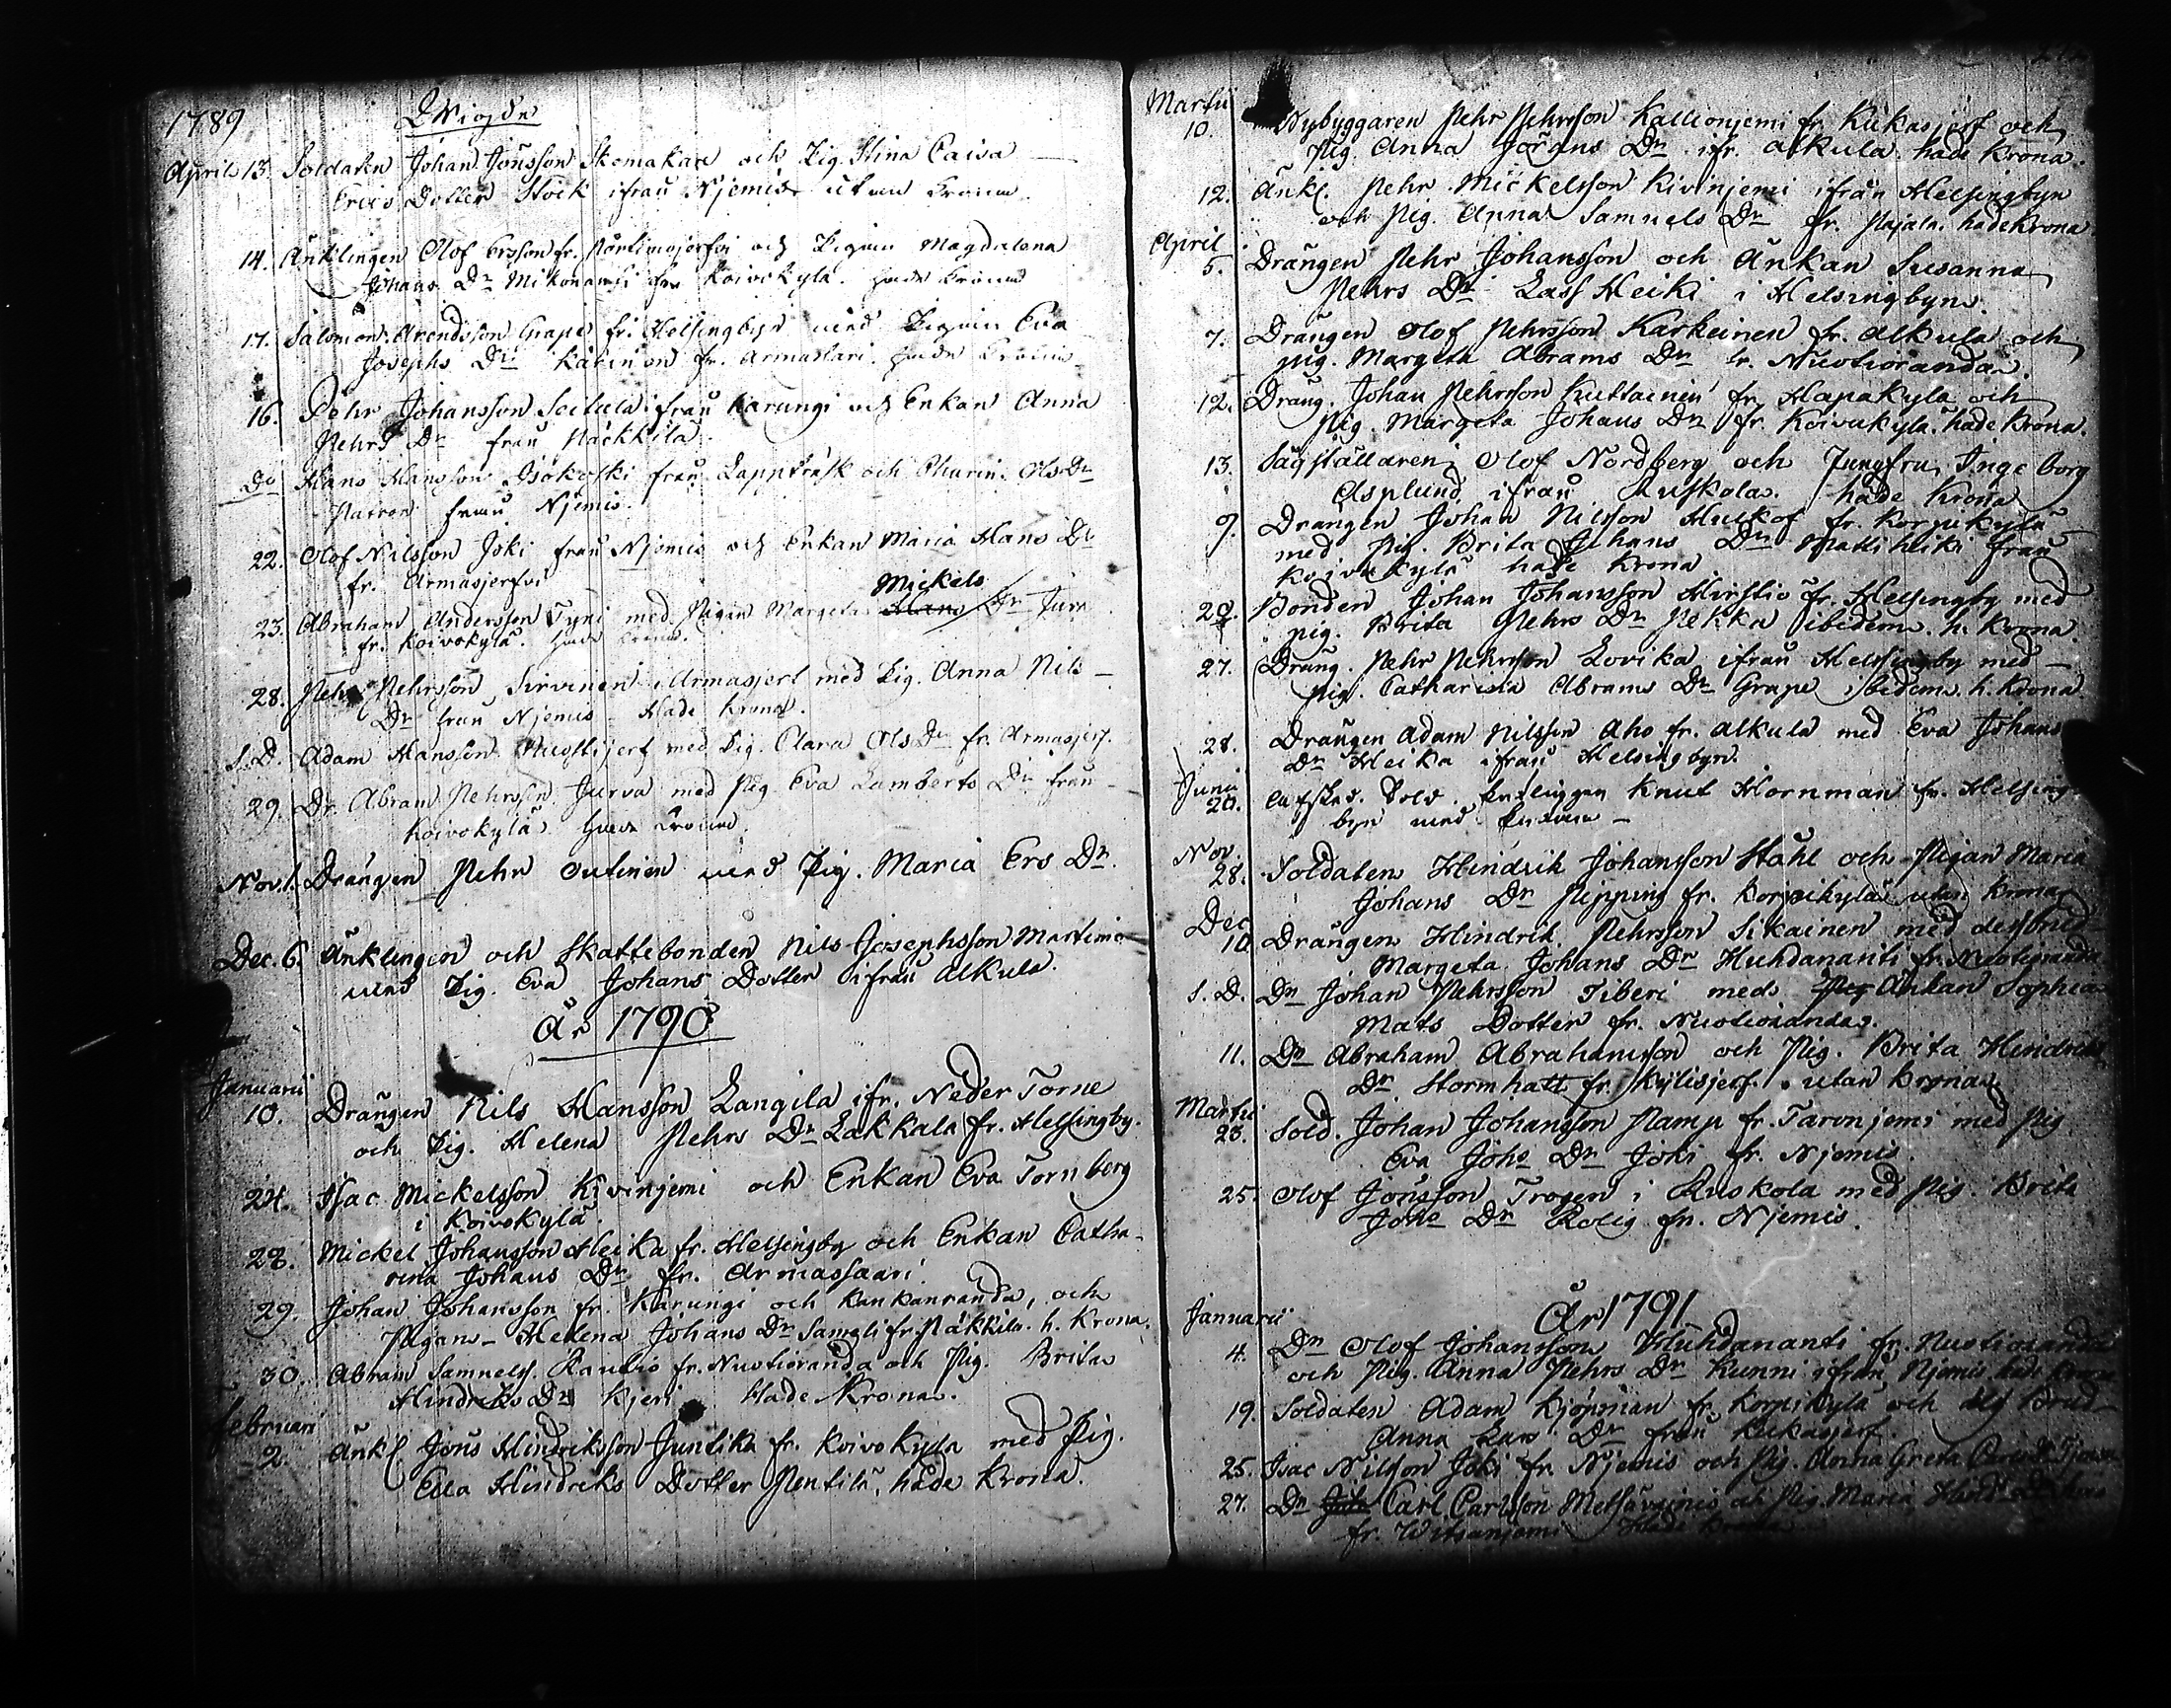 1789 Wigde
April 13. Soldaten Johan Jönsson Skomakare och Pig. Stina Caisa
Erics Dotter Stock ifrån Njemis utan Krona
14. Änklingen Olof Ersson fr. Portimojerfvi och Pigan Magdalena
Johans Dr Mikonanti fr. Koivokylä. hade Krona
17. Salomon Arendsson Grape fr. Helsingbyn med Pigan Eva
Josephs Dr fr. Armassari. hade Krona
16. Pehr Johansson ifrån Karungi och Enkan Anna
Pehrs Dr från Päkkilä.
Do Hans Hansson Isokoski från Lappträsk och Olsdr
från Njemis.
22. Olof Nilsson Joki från Njemis och Enkan Maria Hans Dr
fr. Armasjerfvi
Mickels
23. Abraham Andersson Tyni med Pigan Margeta Hans Dr
fr. Koivokylä. hade Krona.
28. Pehr Pehrsson Sirvinen i Armasjerf med Pig. Anna Nils
Dr från Njemis. Hade Krona.
S.D. Adam Hansson med Pig. Clara Ols Dr fr. Armasjerf.
29. Dr. Abram Pehrsson Jurva med Pig. Eva Lamberts Dr från
Koivokylä. hade Krona.
Nov. 1. Drängen Pehr Outinen med Pig. Maria Ers Dr.
Dec. 6. Änklingen och Skattebonden Nils Josephsson Martimo
med Pig. Eva Johans Dotter ifrån Alkula.
År 1790
Januarii
10. Drängen Nils Hansson Langila ifr. Neder Torne
och Pig. Helena Pehrs Dr Lakkala fr. Helsingby.
24. Isac Mickelsson Kivinjemi och Enkan Eva Tornberg
i Koivokylä.
28. Mickel Johansson Heika fr. Helsingby och Enkan Catha-
rina Johans Dr fr. Armassaari.
29. Johan Johansson fr. Karungi och Kankanranda, och
Pigan Helena Johans Dr fr. Päkkila. h. Krona.
30. Abram Samuels. Rautio fr. Nuotioranda och Pig. Brita
Hindriks Dr Kjeri Hade Krona.
Februari
2. Änkl. Jöns Hindriksson Juntika fr. Koivokylä med Pig.
Ella Hindriks Dotter Pentilä, hade Krona.
Martii
10. Nybyggaren Pehr Pehrsson Kallionjemi fr. Kukasjerf och
Pig. Anna Jörans Dr ifr. Alkula. hade Krona.
12. Änkl. Pehr Mickelsson Kivinjemi ifrån Helsingbyn
och Pig. Anna Samuels Dr fr. Pajala. hade Krona
April
5. Drängen Pehr Johansson och Änkan Susanna
Pehrs Dr Lass Heiki i Helsingbyn.
7. Drängen Olof Pehrsson Karkeinen fr. Alkula och
pig. Margeta Abrams Dr fr. Nuotioranda.
12. Dräng. Johan Pehrsson Kuttainen fr. Hapakylä och
Pig. Margeta Johans Dr fr. Koivukylä. hade Krona.
13. Sågställaren Olof Nordberg och Jungfru Ingeborg
Asplund ifrån Ruskola. hade Krona
9. Drängen Johan Nilsson Huckof fr. Korpikylä
med Pig. Brita Johans Dr Mattiheiki från
Koivukylä hade Krona
20. Bonden Johan Johansson Hirstiö fr. Helsingby med
pig. Brita Pehrs Dr Pekka ibidem. h. Krona.
27. Dräng. Pehr Pehrsson Lovika ifrån Helsingby med
Pig. Catharina Abrams Dr Grape ibidem. h. Krona
28. Drängen Adam Nilsson Aho fr. Alkula med Eva Johans
Dr Heika ifrån Helsingbyn.
Junii
20. Afsked. Sold. Änklingen Knut Hornman fr. Helsing-
byn med
Nov.
28. Soldaten Hindrik Johansson Stahl och Pigan Maria
Johans Dr Pipping fr. Korpikylä utan Krona
Dec.
10. Drängen Hindrik Pehrsson Sikainen med
Margeta Johans Dr Huhdananti fr. Nuotioranda
S. D. Dr Johan Pehrsson Tiberi med Pig Änkan Sophia
Mats Dotter fr. Nuotioranda.
11. Dr Abraham Abrahamsson och Pig. Brita Hindriks
Dr Stormhatt fr. Kylisjerf. utan Krona
Martii
23. Sold. Johan Johansson Kamp fr. Tavonjemi med Pig
Eva Johs Dr Joki fr. Njemis.
25. Olof Jönsson Trogen i Ruskola med Pig. Brita
Johs Dr Rolig fr. Njemis.
År 1791
Januarii
4. Dr Olof Johansson Huhdananti fr. Nuotioranda
och Pig. Anna Pehrs Dr Kunni ifrån Njemis hade Krona
19. Soldaten Adam Kjöpman fr. Korpikylä och Brud
Anna Lars Dr från Kukasjerf.
25. Isac Nilsson Joki fr. Njemis och Pig. Anna Greta
27. Dr Joh. Carl Carlsson Metsävainio och Pig. Maria Hans Dr
fr. Witsanjemi Hade Krona